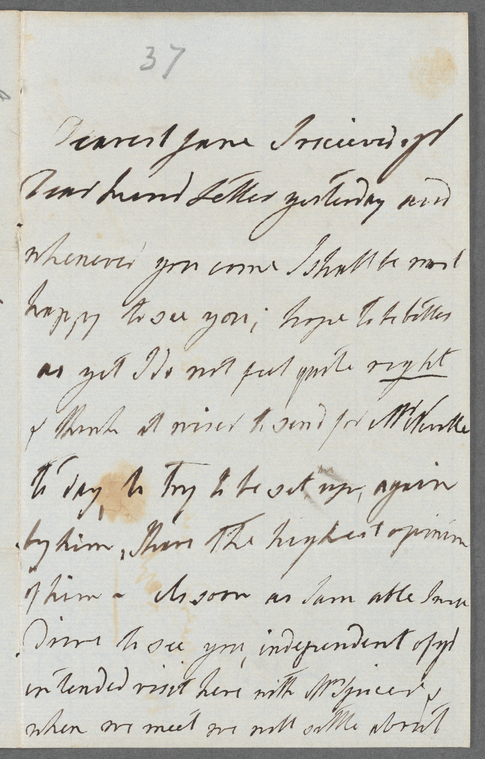 37
Dearest Jane I recieved yr
kind letter yesterday and
whenever you come I shall be most
happy to see you; hope to be better
as yet I do not feel quite right
& think it wiser to send for Mr
to day, to try to be set up, again
by him, I have the highest opinion
of him - As soon as I am able I will
Drive to see you, independent of yr
intended visit here with Mr Spicer
when we meet we will settle about